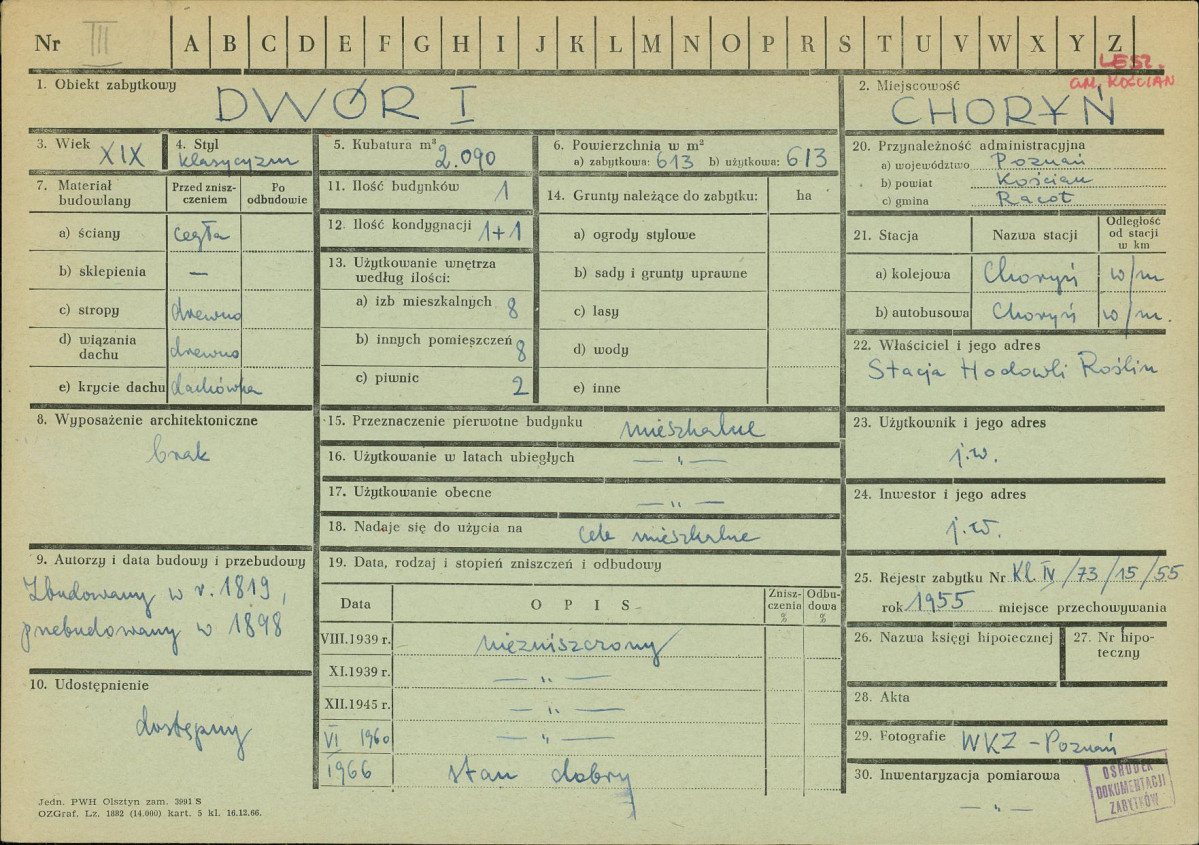 Nr III A B C D E F G H I J K L M N O P R S T U V W X Y Z
LESZ.
GM. KOŚCIAN
1. Obiekt zabytkowy
DWÓR I
2. Miejscowość
CHORYŃ
3. Wiek XIX
4. Styl
klasycyzm
5. Kubatura m³
2.090
6. Powierzchnia w m²
a) zabytkowa: 613 b) użytkowa: 613
7. Materiał budowlany
Przed zniszczeniem
Po odbudowie
a) ściany cegła
b) sklepienia —
c) stropy drewno
d) wiązania dachu drewno
e) krycie dachu dachówka
8. Wyposażenie architektoniczne
brak
9. Autorzy i data budowy i przebudowy
Zbudowany w r. 1819,
przebudowany w 1898
10. Udostępnienie
dostępny
11. Ilość budynków 1
12. Ilość kondygnacji 1+1
13. Użytkowanie wnętrza
według ilości:
a) izb mieszkalnych 8
b) innych pomieszczeń 8
c) piwnic 2
14. Grunty należące do zabytku: ha
a) ogrody stylowe
b) sady i grunty uprawne
c) lasy
d) wody
e) inne
15. Przeznaczenie pierwotne budynku mieszkalne
16. Użytkowanie w latach ubiegłych — „ —
17. Użytkowanie obecne — „ —
18. Nadaje się do użycia na cele mieszkalne
19. Data, rodzaj i stopień zniszczeń i odbudowy
Data
OPIS
Zniszczenia %
Odbudowa %
VIII.1939 r. niezniszczony
XI.1939 r. — „ —
XII.1945 r. — „ —
VI 1960 — „ —
1966 stan dobry
20. Przynależność administracyjna
a) województwo Poznań
b) powiat Kościan
c) gmina Racot
21. Stacja
Nazwa stacji
Odległość od stacji w km
a) kolejowa Choryń w/m
b) autobusowa Choryń w/m.
22. Właściciel i jego adres
Stacja Hodowli Roślin
23. Użytkownik i jego adres
j.w.
24. Inwestor i jego adres
j.w.
25. Rejestr zabytku Nr Kl. IV/73/15/55
rok 1955 miejsce przechowywania
26. Nazwa księgi hipotecznej
27. Nr hipoteczny
28. Akta
29. Fotografie WKZ - Poznań
30. Inwentaryzacja pomiarowa
— „ —
OŚRODEK
DOKUMENTACJI
ZABYTKÓW
Jedn. PWH Olsztyn zam. 3991 S
OZGraf. Lz. 1882 (14.000) kart. 5 kl. 16.12.66.